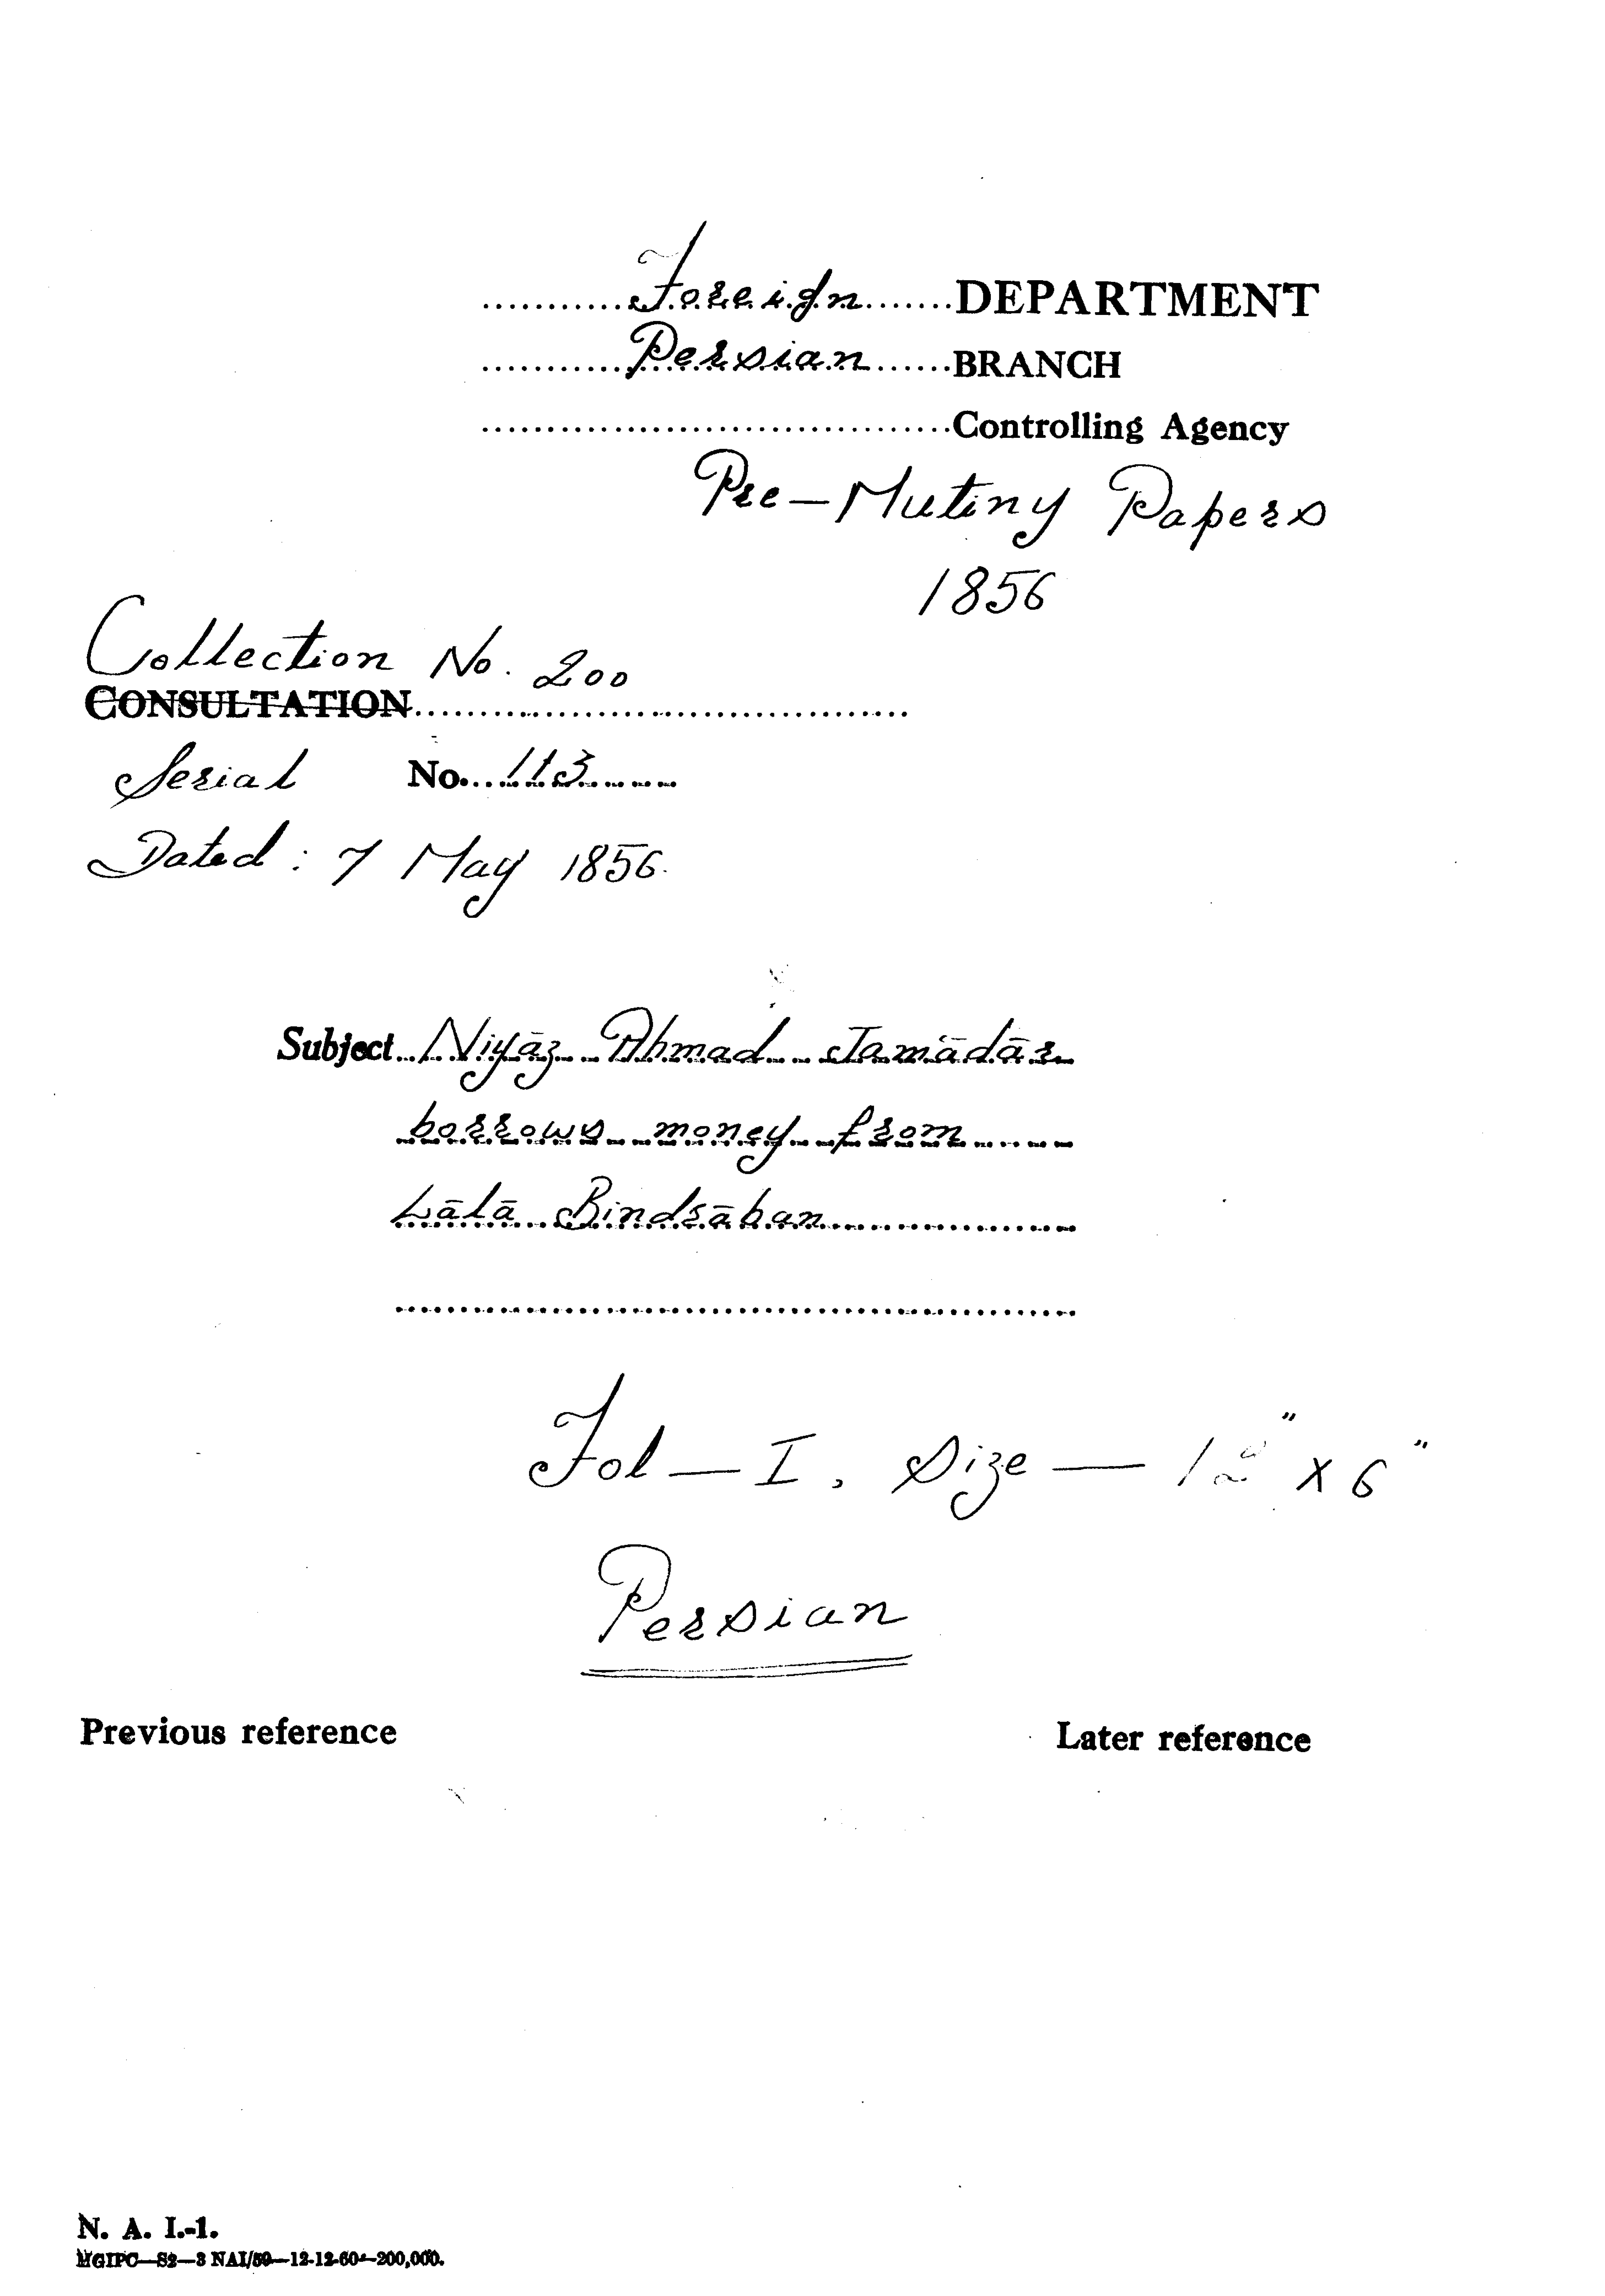 Foreign DEPARTMENT
Persian BRANCH
Controlling Agency
Pre-Mutiny Papers
1856
Collection No. 200
CONSULTATION
Serial No. 113
Dated : 7 May 1856.
Subject Niyāz Ahmad Jamādār
borrows money from
Lālā Bindrāban
Fol — I, Size — 12" x 6"
Persian
Previous reference Later reference
N. A. I.-1.
MGIPC—S2—3 NAI/59—12-12-60—200,000.